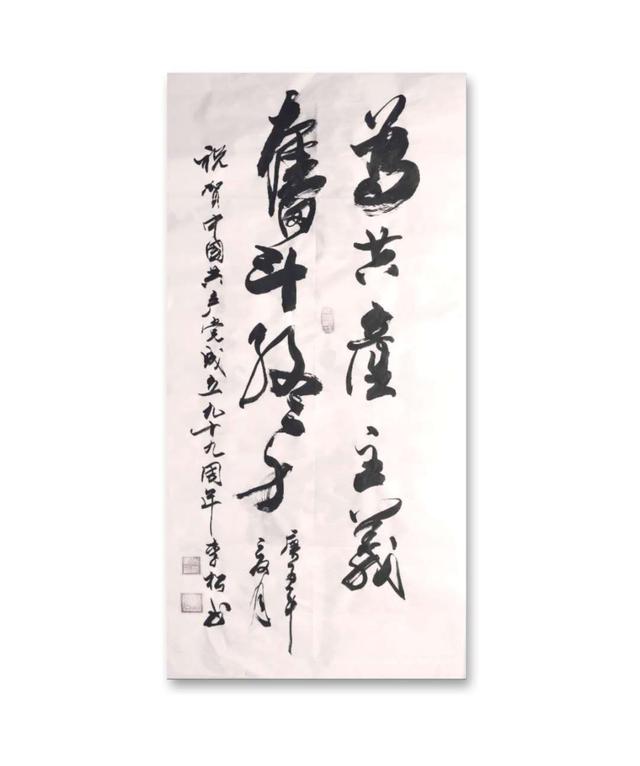 為共產主義
奮斗终身
庚子年
夏月
祝賀中國共产党成立九十九周年李松书